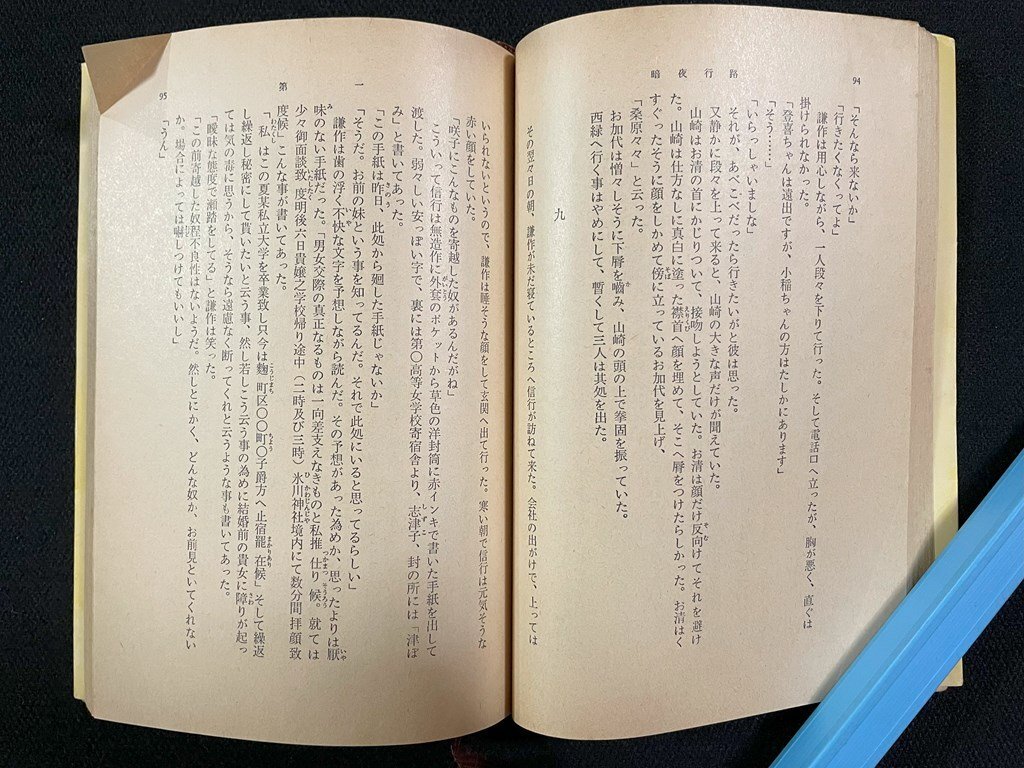 94
暗夜行路
「そんなら来ないか」
「行きたくなくってよ」
謙作は用心しながら、一人段々を下りて行った。そして電話口へ立ったが、胸が悪く、直ぐは
掛けられなかった。
「登喜ちゃんは遠出ですが、小稲ちゃんの方はたしかにあります」
「そう……」
「いらっしゃいましな」
それが、あべこべだったら行きたいがと彼は思った。
又静かに段々を上って来ると、山崎の大きな声だけが聞えていた。
山崎はお清の首にかじりついて、接吻しようとしていた。お清は顔だけ反向けてそれを避け
た。山崎は仕方なしに真白に塗った襟首へ顔を埋めて、そこへ脣をつけたらしかった。お清はく
すぐったそうに顔をしかめて傍に立っているお加代を見上げ、
「桑原々々」と云った。
お加代は憎々しそうに下脣を嚙み、山崎の頭の上で拳固を振っていた。
西緑へ行く事はやめにして、暫くして三人は其処を出た。
九
その翌々日の朝、謙作が未だ寝ているところへ信行が訪ねて来た。会社の出がけで、上っては
いられないというので、謙作は睡そうな顔をして玄関へ出て行った。寒い朝で信行は元気そうな
赤い顔をしていた。
「咲子にこんなものを寄越した奴があるんだがね」
こういって信行は無造作に外套のポケットから草色の洋封筒に赤インキで書いた手紙を出して
渡した。弱々しい安っぽい字で、裏には第〇高等女学校寄宿舎より、志津子、封の所には「津ぼ
み」と書いてあった。
「この手紙は昨日、此処から廻した手紙じゃないか」
「そうだ。お前の妹という事を知ってるんだ。それで此処にいると思ってるらしい」
謙作は歯の浮く不快な文字を予想しながら読んだ。その予想があった為めか、思ったよりは厭
味のない手紙だった。「男女交際の真正なるものは一向差支えなきものと私推仕り候。就ては
少々御面談致度明後六日貴嬢之学校帰り途中(二時及び三時)氷川神社境内にて数分間拝顔致
度候」こんな事が書いてあった。
「私はこの夏某私立大学を卒業致し只今は麹町区〇〇町〇子爵方へ止宿罷在候」そして繰返
し繰返し秘密にして貰いたいと云う事、然し若しこう云う事の為めに結婚前の貴女に障りが起っ
ては気の毒に思うから、そうなら遠慮なく断ってくれと云うような事も書いてあった。
「曖昧な態度で瀬踏をしてる」と謙作は笑った。
「この前寄越した奴程不良性はないようだ。然しとにかく、どんな奴か、お前見といてくれない
か。場合によっては嚇しつけてもいいし」
「うん」
第一
95